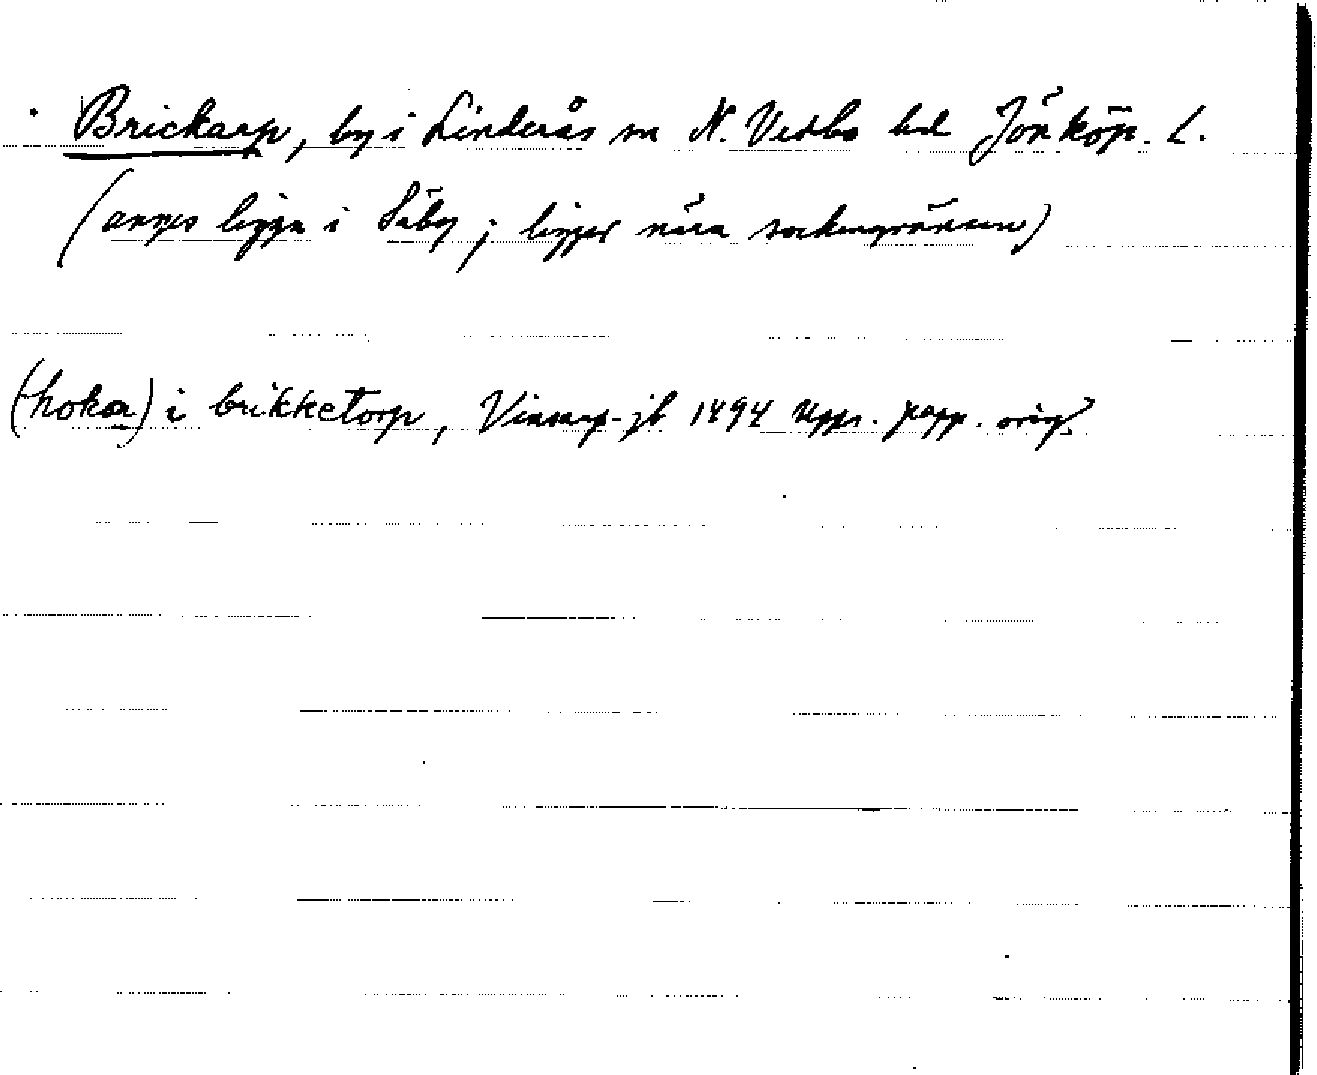 Brickarp, by i Linderås sn N. Vedbo hd Jönköp. L.
(anges ligga i Säby; ligger nära sockengränsen)
(hokox) i brikketorp, Vinsarp-jb 1494 Upps. papp. orig.